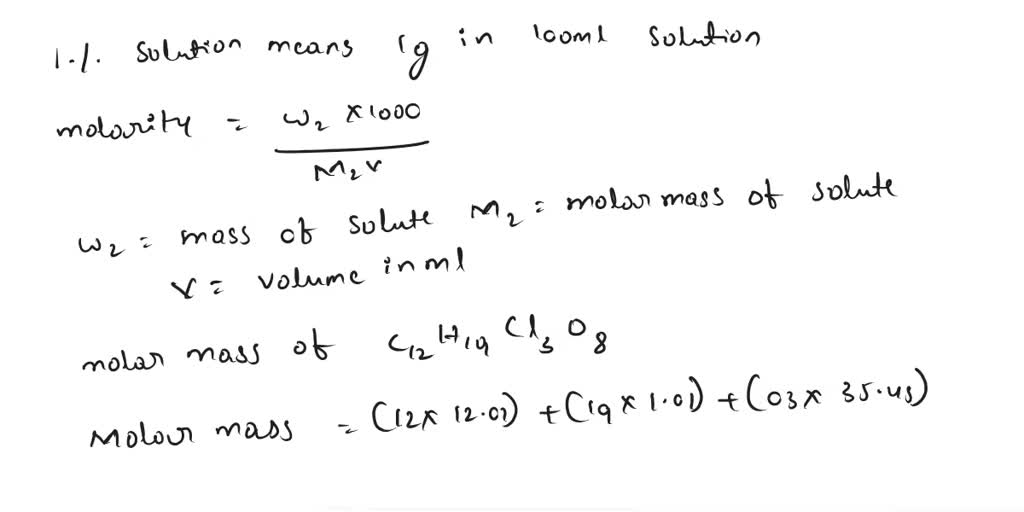 1./. solution means 1g in 100ml solution
molarity = W₂ × 1000 / M₂ V
W₂ = mass of solute M₂ = molar mass of solute
V = volume in ml
molar mass of C₁₂H₁₉Cl₃O₈
Molar mass = (12 × 12.01) + (19 × 1.01) + (03 × 35.45)